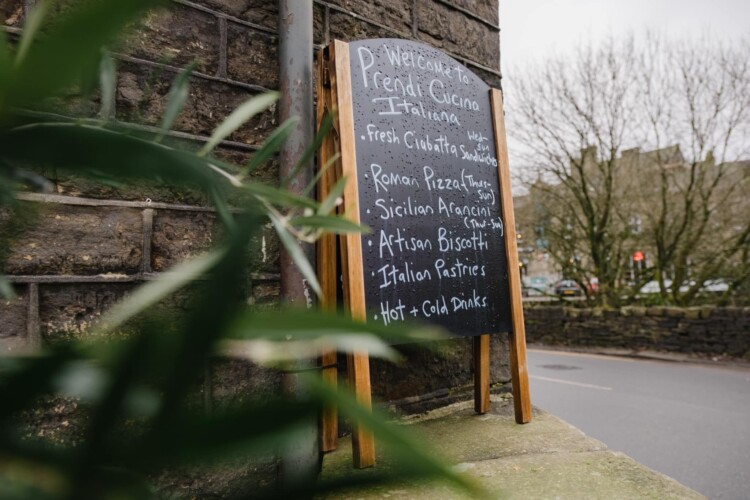 Welcome to
Prendi Cucina
Italiana
• Fresh Ciabatta Sandwiches
West-
Sun
• Roman Pizza (Thurs-
Sun)
• Sicilian Arancini
(Thur-Sun)
• Artisan Biscotti
• Italian Pastries
• Hot + Cold Drinks